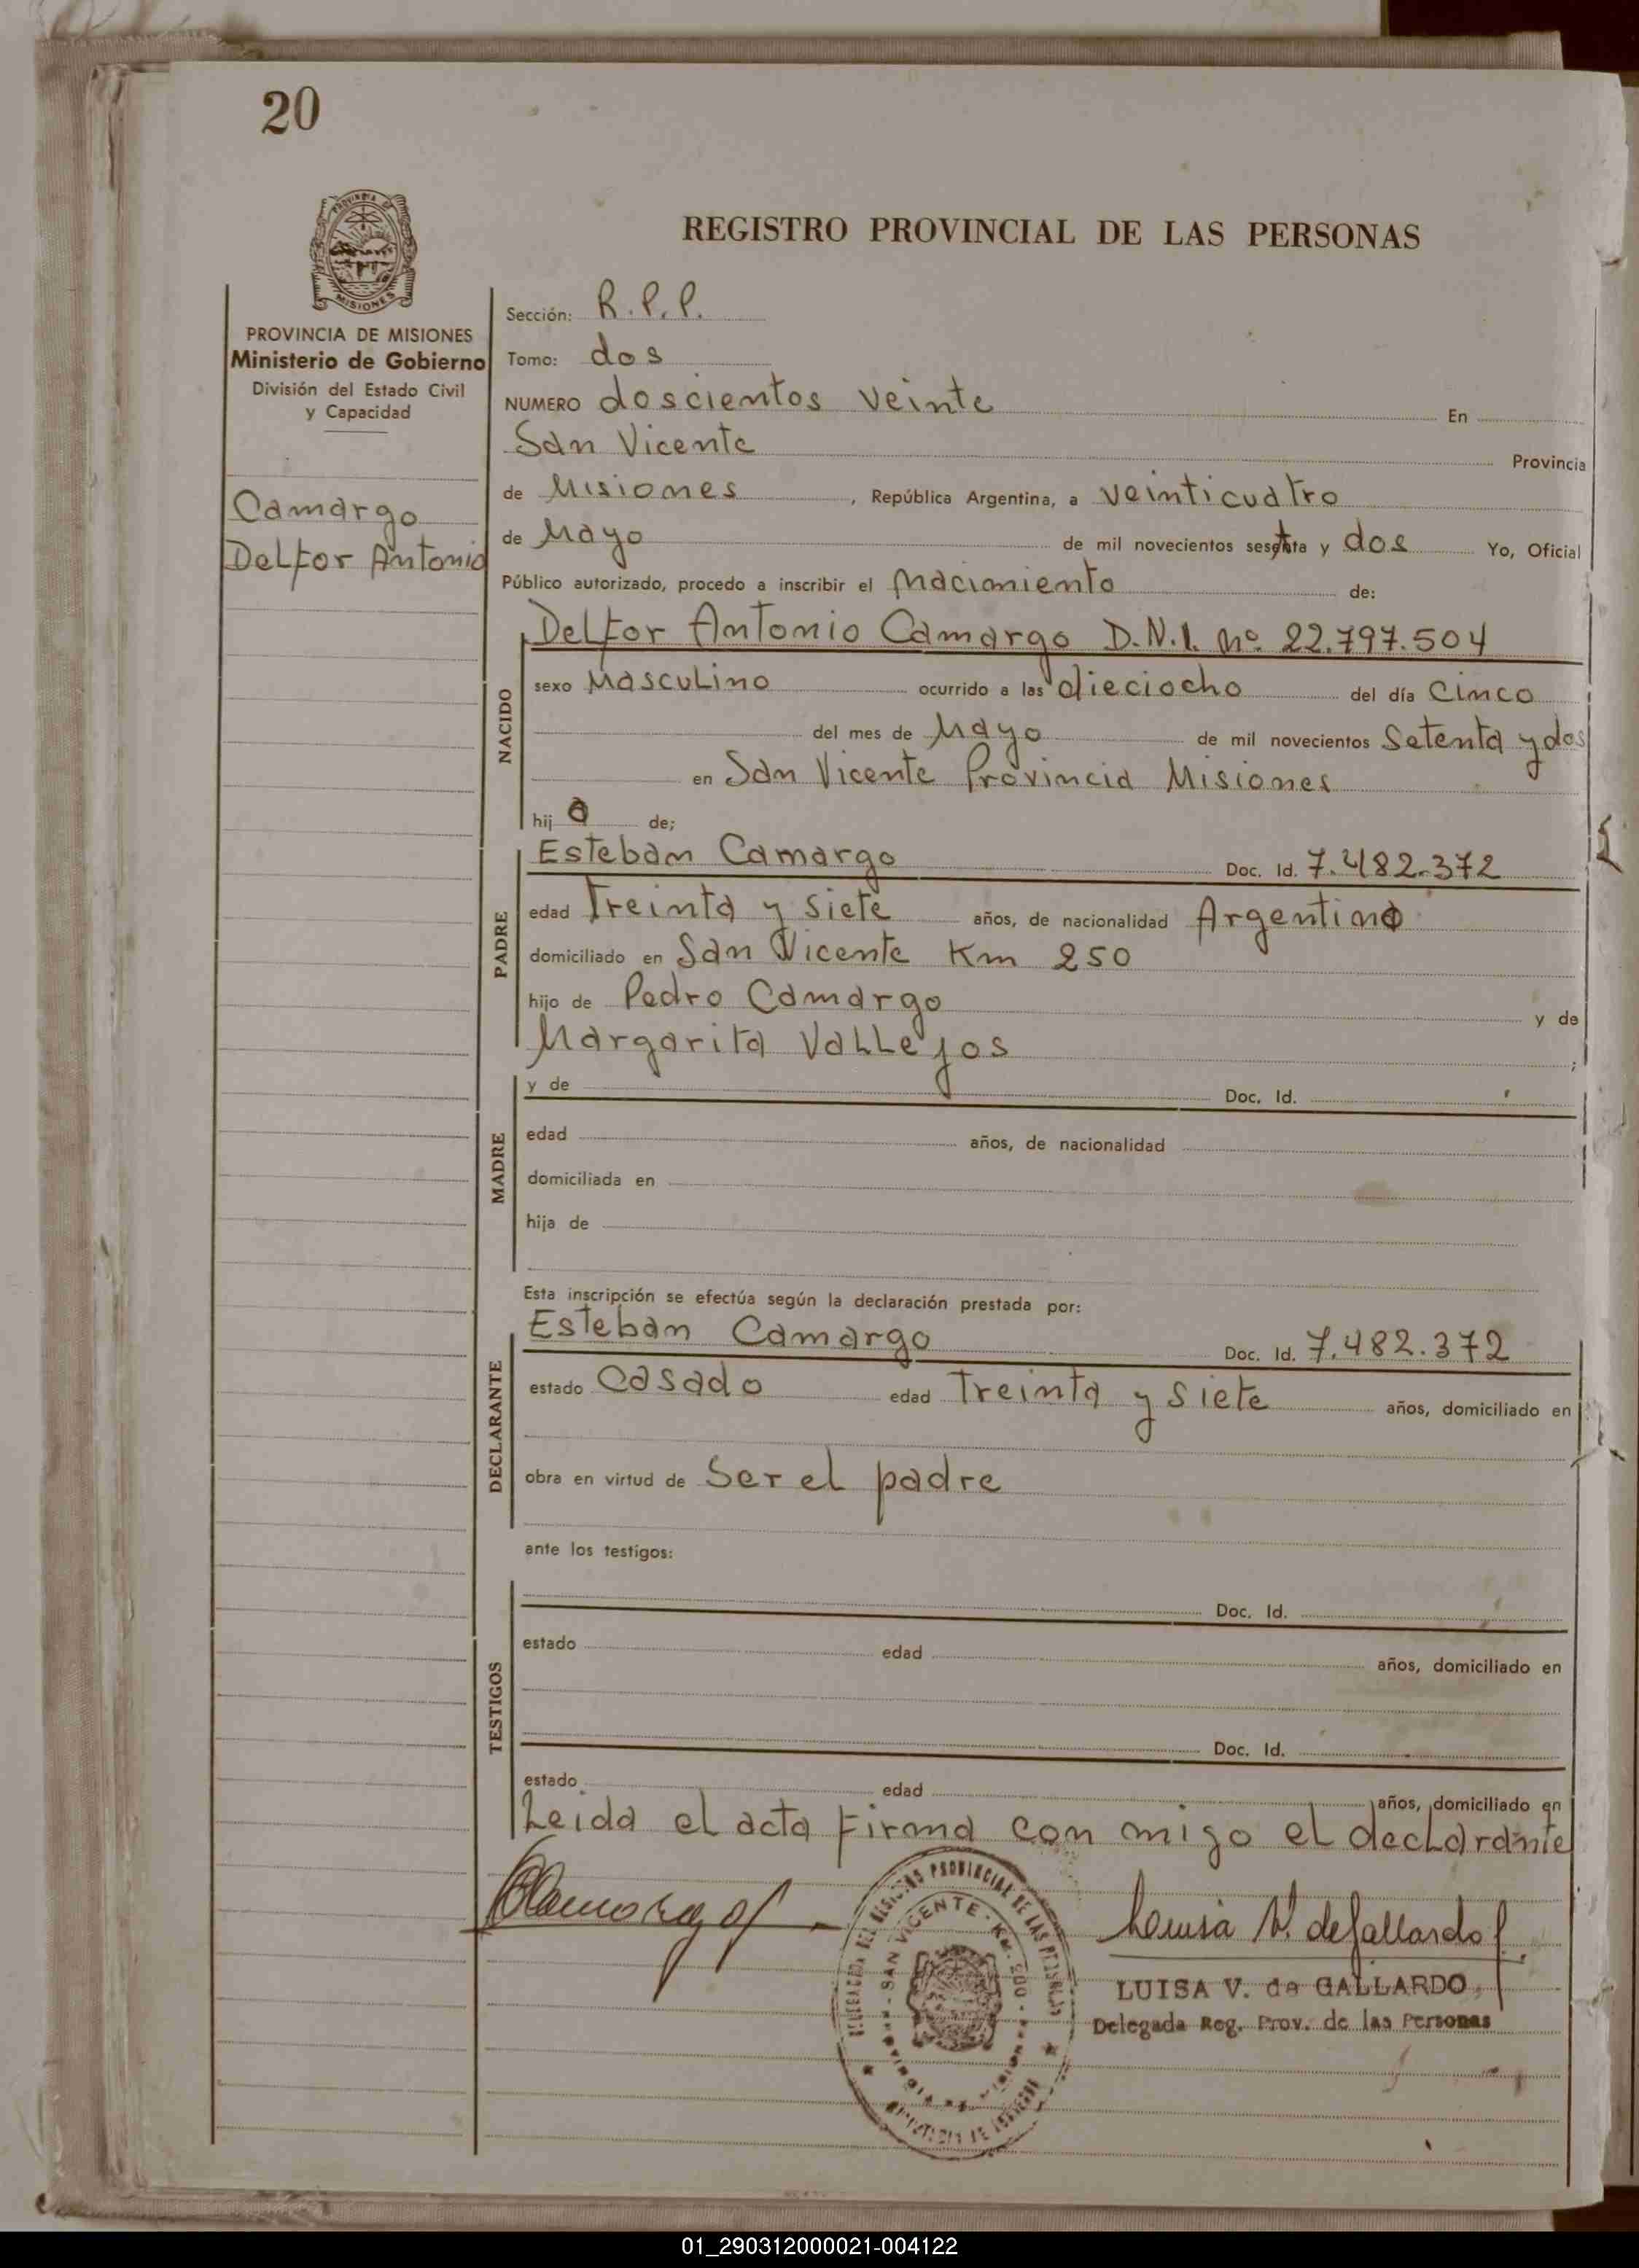 20
PROVINCIA DE
MISIONES
REGISTRO PROVINCIAL DE LAS PERSONAS
PROVINCIA DE MISIONES
Ministerio de Gobierno
División del Estado Civil
y Capacidad
Camargo
Delfor Antonio
Sección: R.P.P.
Tomo: dos
NUMERO doscientos veinte En
San Vicente Provincia
de Misiones, República Argentina, a veinticuatro
de Mayo de mil novecientos setenta y dos Yo, Oficial
Público autorizado, procedo a inscribir el nacimiento de:
NACIDO
Delfor Antonio Camargo D.N.I. Nº. 22.797.504
sexo Masculino ocurrido a las dieciocho del día Cinco
del mes de Mayo de mil novecientos Setenta y dos
en San Vicente Provincia Misiones
hijo de;
PADRE
Esteban Camargo Doc. Id. 7.482.372
edad Treinta y siete años, de nacionalidad Argentino
domiciliado en San Vicente Km 250
hijo de Pedro Camargo y de
Margarita Vallejos ;
MADRE
y de Doc. Id.
edad años, de nacionalidad
domiciliada en
hija de
Esta inscripción se efectúa según la declaración prestada por:
DECLARANTE
Esteban Camargo Doc. Id. 7.482.372
estado Casado edad Treinta y siete años, domiciliado en
obra en virtud de Ser el padre
ante los testigos:
TESTIGOS
Doc. Id.
estado edad años, domiciliado en
Doc. Id.
estado edad años, domiciliado en
Leida el acta firma con migo el declarante
Luisa V. de Gallardo
LUISA V. de GALLARDO
Delegada Reg. Prov. de las Personas
PROVINCIAL DE LAS
SAN VICENTE - KM. 200 -
01_290312000021-004122